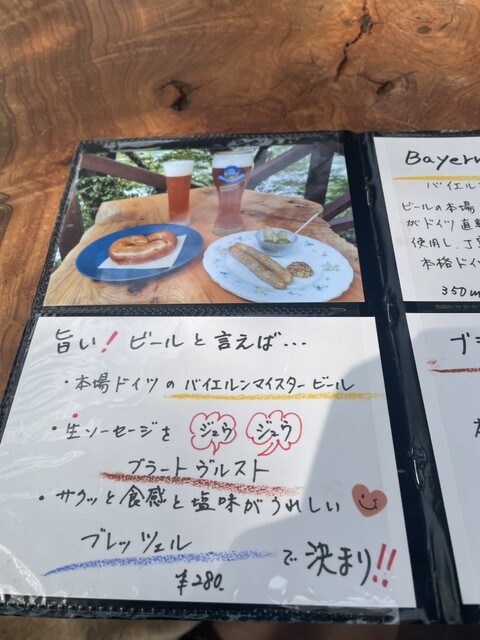 旨い! ビールと言えば…
・本場ドイツの バイエルンマイスタービール
・生ソーセージを ジュウ ジュウ
ブラートヴルスト
・サクッと食感と塩味がうれしい
ブレッツェル で 決まり!!
¥280.
Bayern
バイエルン
ビールの本場
がドイツ直
使用し、丁
本格ドイ
350m
ブ